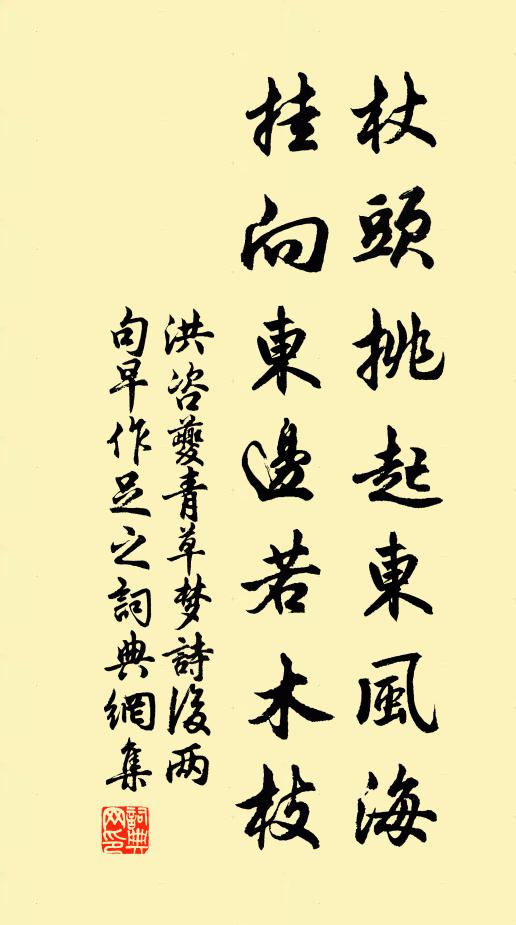 杖頭挑起東風海
挂向東邊若木枝
洪咨夔青草梦詩後两
句早作足之詞典網集
詞典网印